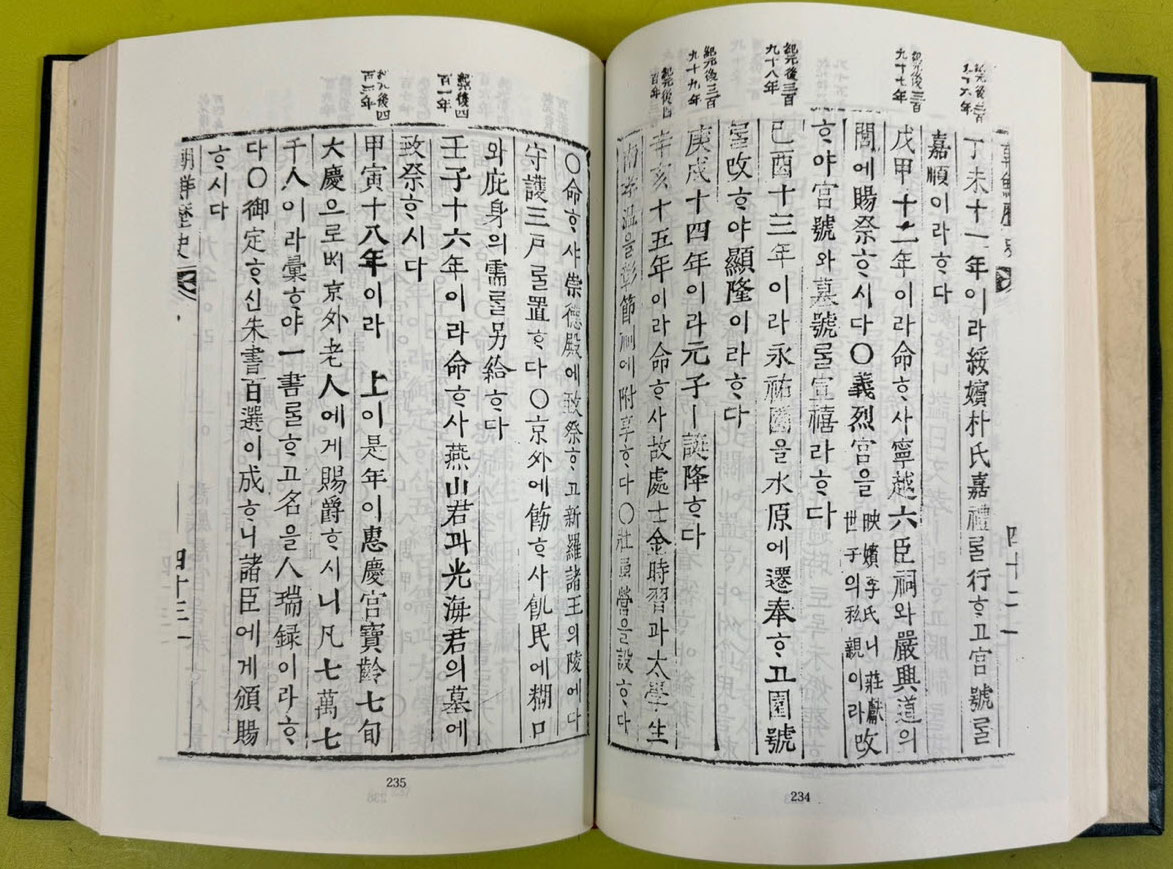 紀元後三百九十六年
紀元後三百九十七年
紀元後三百九十八年
紀元後三百九十九年
紀元後四百年
朝鮮歷史
四十二
丁未十一年이라綏嬪朴氏嘉禮룰行ᄒᆞ고宮號룰
嘉順이라ᄒᆞ다
戊甲十二年이라命ᄒᆞ사寧越六臣祠와嚴興道의
閭에賜祭ᄒᆞ시다〇義烈宮을映嬪李氏니莊獻世子의私親이라改
ᄒᆞ야宮號와墓號룰宣禧라ᄒᆞ다
己酉十三年이라永祐園을水原에遷奉ᄒᆞ고園號
룰改ᄒᆞ야顯隆이라ᄒᆞ다
庚戌十四年이라元子ㅣ誕降ᄒᆞ다
辛亥十五年이라命ᄒᆞ사故處士金時習과太學生
南孝溫을彰節祠에附享ᄒᆞ다〇壯勇營을設ᄒᆞ다
234
紀元後四百一年
紀元後四百三年
〇命ᄒᆞ샤崇德殿에致祭ᄒᆞ고新羅諸王의陵에다
守護三戶룰置ᄒᆞ다〇京外에飭ᄒᆞ사飢民에糊口
와庇身의需룰另給ᄒᆞ다
壬子十六年이라命ᄒᆞ사燕山君과光海君의墓에
致祭ᄒᆞ시다
甲寅十八年이라 上이是年이惠慶宮寶齡七旬
大慶으로ᄡᅥ京外老人에게賜爵ᄒᆞ시니凡七萬七
千人이라彙ᄒᆞ야一書룰ᄒᆞ고名을人瑞録이라ᄒᆞ
다〇御定ᄒᆞ신朱書百選이成ᄒᆞ니諸臣에게頒賜
ᄒᆞ시다
朝鮮歷史
四十三
235